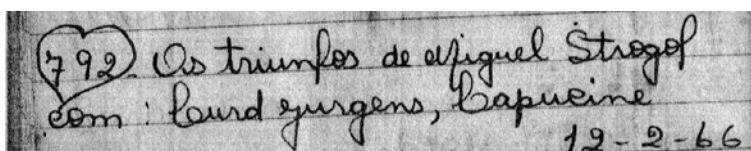 792. Os triunfos de Miguel Strogof
com: Curd Jurgens, Capucine
12-2-66